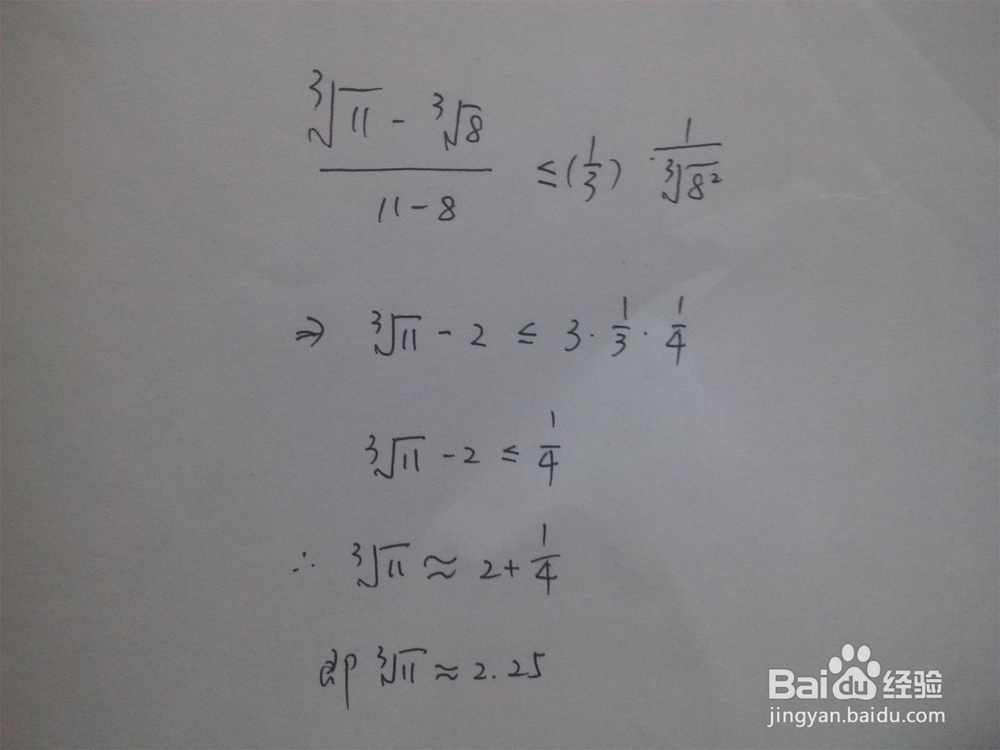 (∛11 - ∛8)/(11-8) ≤ (1/3) · 1/∛8²
⇒ ∛11 - 2 ≤ 3 · 1/3 · 1/4
∛11 - 2 ≤ 1/4
∴ ∛11 ≈ 2 + 1/4
即 ∛11 ≈ 2.25
Baidu经验
jingyan.baidu.com